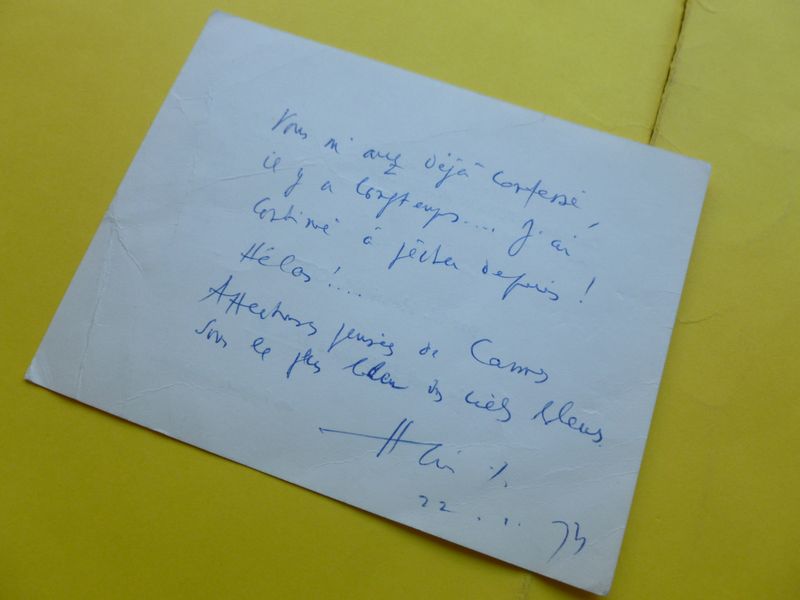 Vous m'avez déjà confessé,
il y a longtemps.... J'ai
continué à pécher depuis !
Hélas !...
Affectueuses pensées de Cannes
sous le plus bleu des ciels bleus.
22 . 1. 73